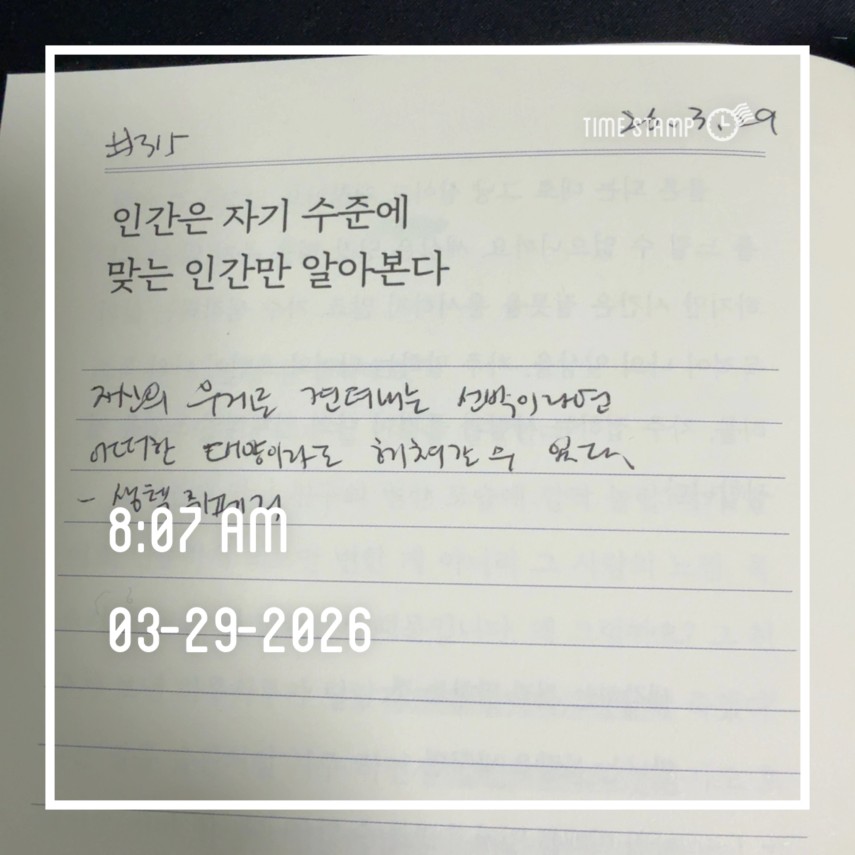 #315
TIME STAMP
인간은 자기 수준에
맞는 인간만 알아본다
자신의 무게로 견뎌내는 선박이라면
어떠한 태양이라도 헤쳐갈 수 있다.
- 생텍쥐페리
8:07 AM
03-29-2026